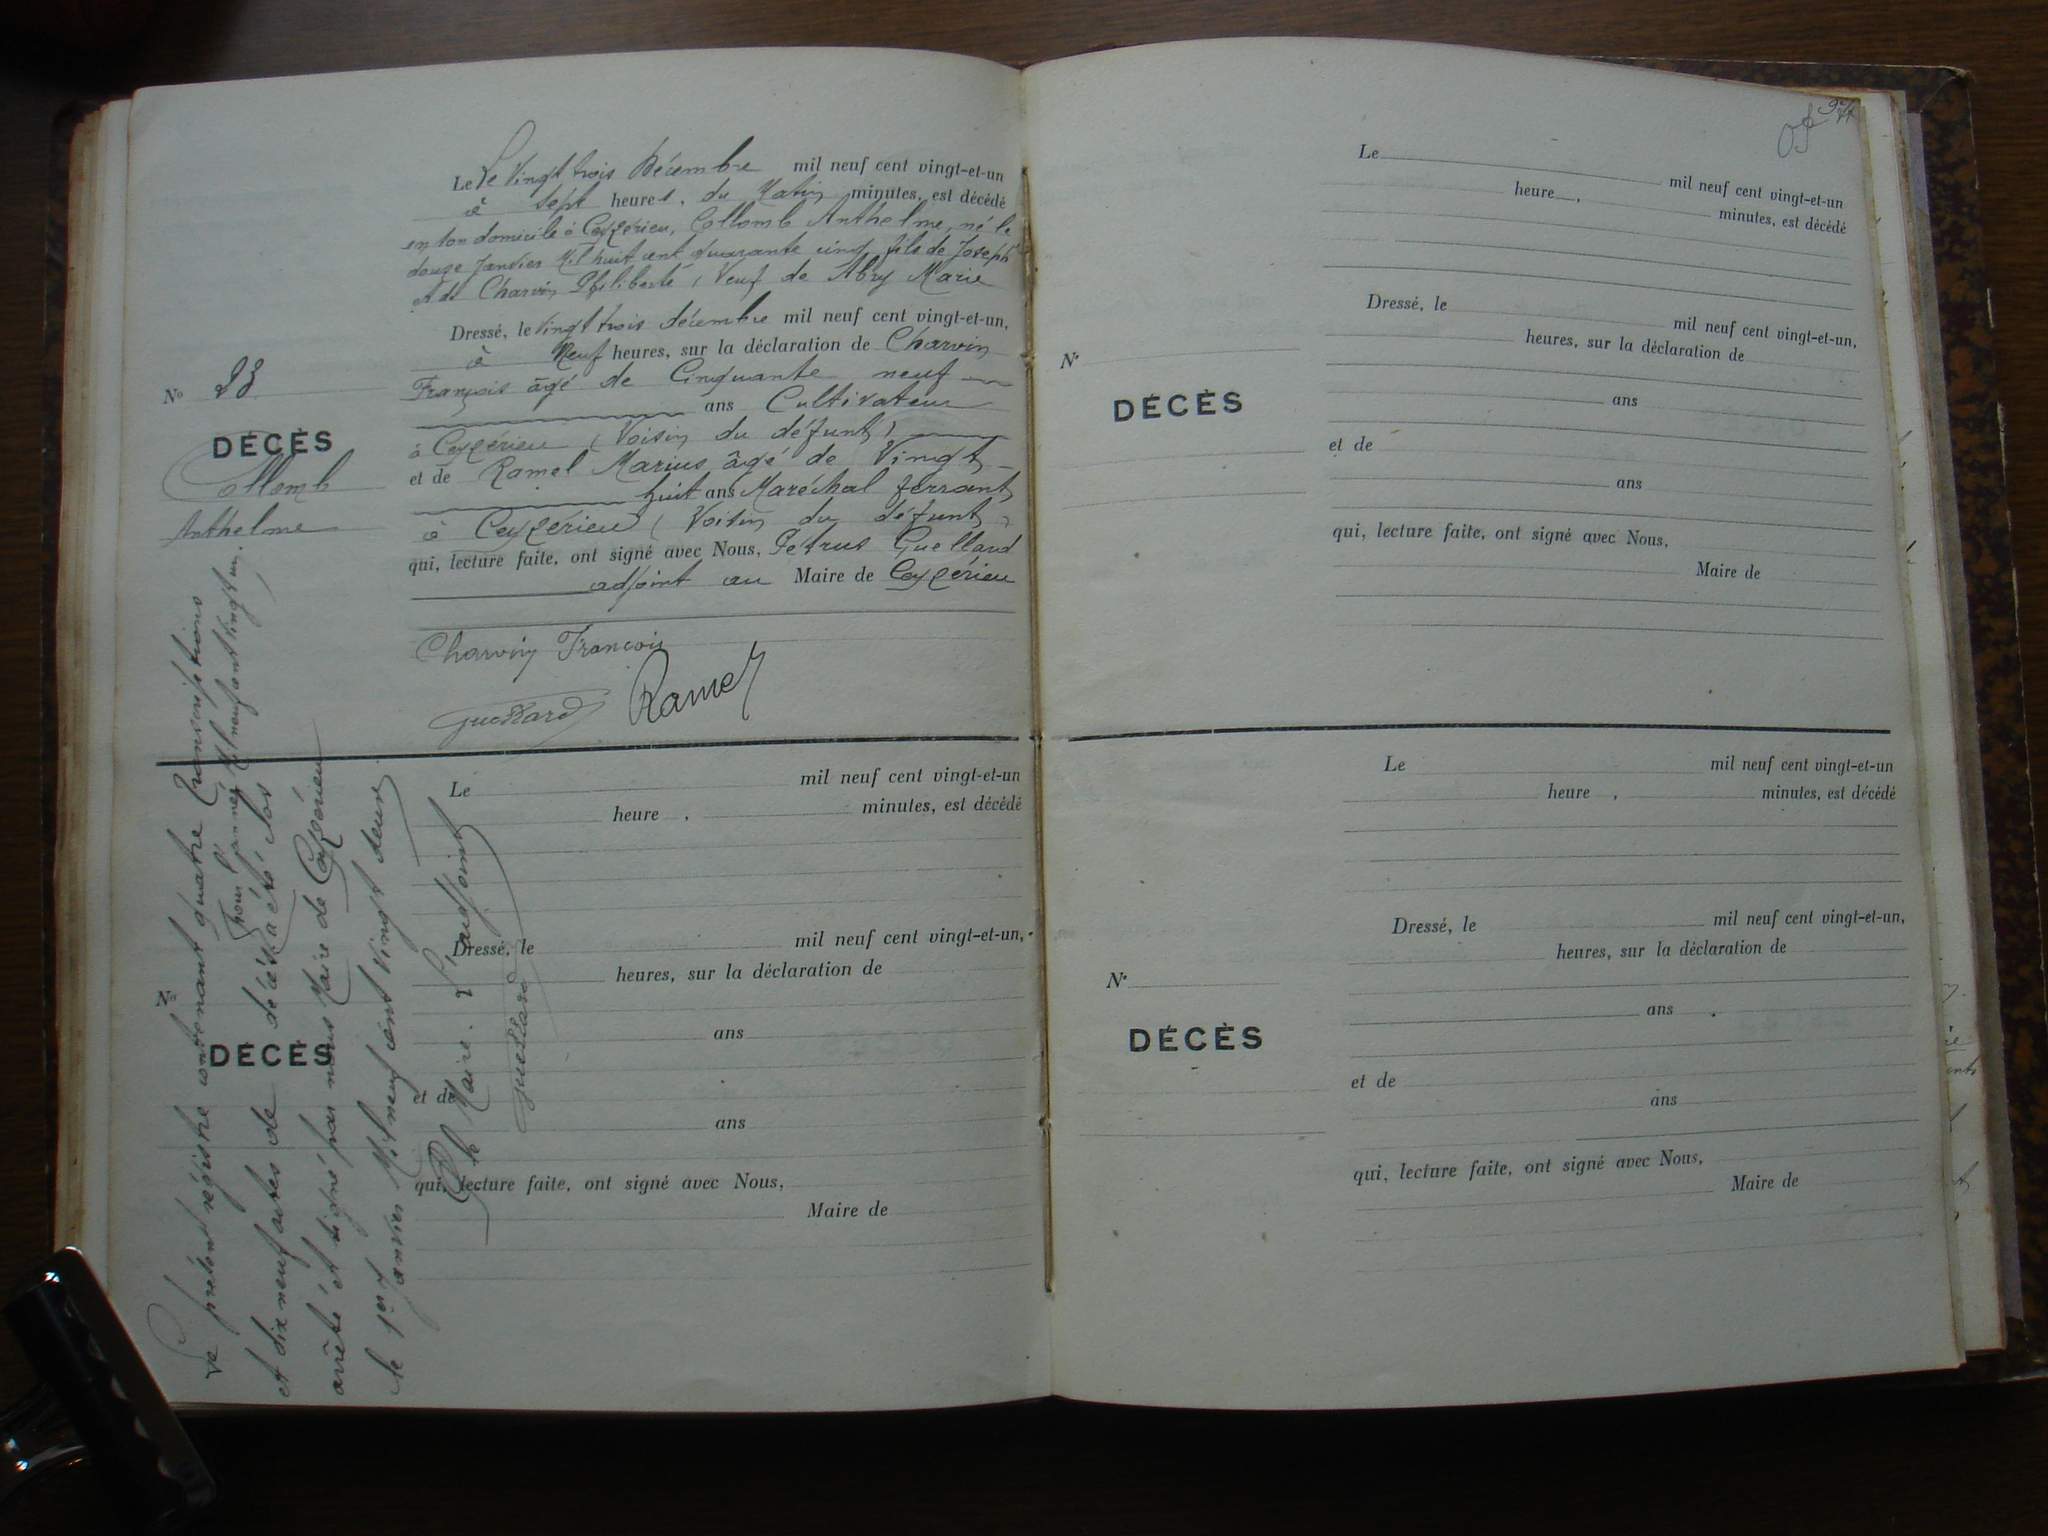 Le Le Vingt trois Décembre mil neuf cent vingt-et-un
à sept heures, du Matin minutes, est décédé
en son domicile à Ceyzérieu, Collomb Anthelme, né le
douze Janvier Mil huit cent quarante cinq fils de Joseph
et de Charvin Philiberte, Veuf de Abry Marie
Dressé, le vingt trois décembre mil neuf cent vingt-et-un,
à Neuf heures, sur la déclaration de Charvin
François âgé de Cinquante neuf
ans Cultivateur
à Ceyzérieu (Voisin du défunt)
et de Ramel Marius âgé de Vingt
huit ans Maréchal ferrant
à Ceyzérieu (Voisin du défunt)
qui, lecture faite, ont signé avec Nous, Pétrus Guellard
adjoint au Maire de Ceyzérieu
Charvin François
Guellard Ramel
No 23
DÉCÈS
Collomb
Anthelme
Le présent registre contenant quatre transcriptions
et dix neuf actes de décès a été clos
Pour l'année Mil neuf cent vingt un,
arrêté et signé par nous Maire de Ceyzérieu
le 1er Janvier Mil neuf cent Vingt deux
P. le Maire. L'adjoint
Guellard
Le mil neuf cent vingt-et-un
heure , minutes, est décédé
Dressé, le mil neuf cent vingt-et-un,
heures, sur la déclaration de
ans
et de
ans
qui, lecture faite, ont signé avec Nous,
Maire de
No
DÉCÈS
Le mil neuf cent vingt-et-un
heure , minutes, est décédé
Dressé, le mil neuf cent vingt-et-un,
heures, sur la déclaration de
ans
et de
ans
qui, lecture faite, ont signé avec Nous,
Maire de
N°
DÉCÈS
Le mil neuf cent vingt-et-un
heure , minutes, est décédé
Dressé, le mil neuf cent vingt-et-un,
heures, sur la déclaration de
ans
et de
ans
qui, lecture faite, ont signé avec Nous,
Maire de
N°
DÉCÈS